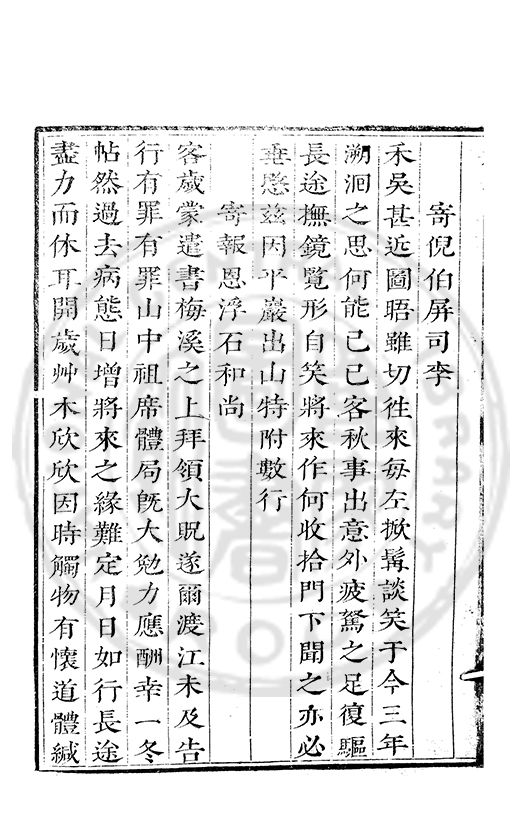 寄倪伯屏司李
禾吳甚近圖晤雖切徃來每左掀髯談笑于今三年
溯洄之思何能已已客秋事出意外疲駑之足復驅
長途撫鏡覽形自笑將來作何收拾門下聞之亦必
垂愍茲因平巖出山特附數行
寄報恩浮石和尚
客歲蒙遣書梅溪之上拜領大貺遂爾渡江未及告
行有罪有罪山中祖席體局旣大勉力應酬幸一冬
帖然過去病態日增將來之緣難定月日如行長途
盡力而休耳開歲艸木欣欣因時觸物有懷道體緘